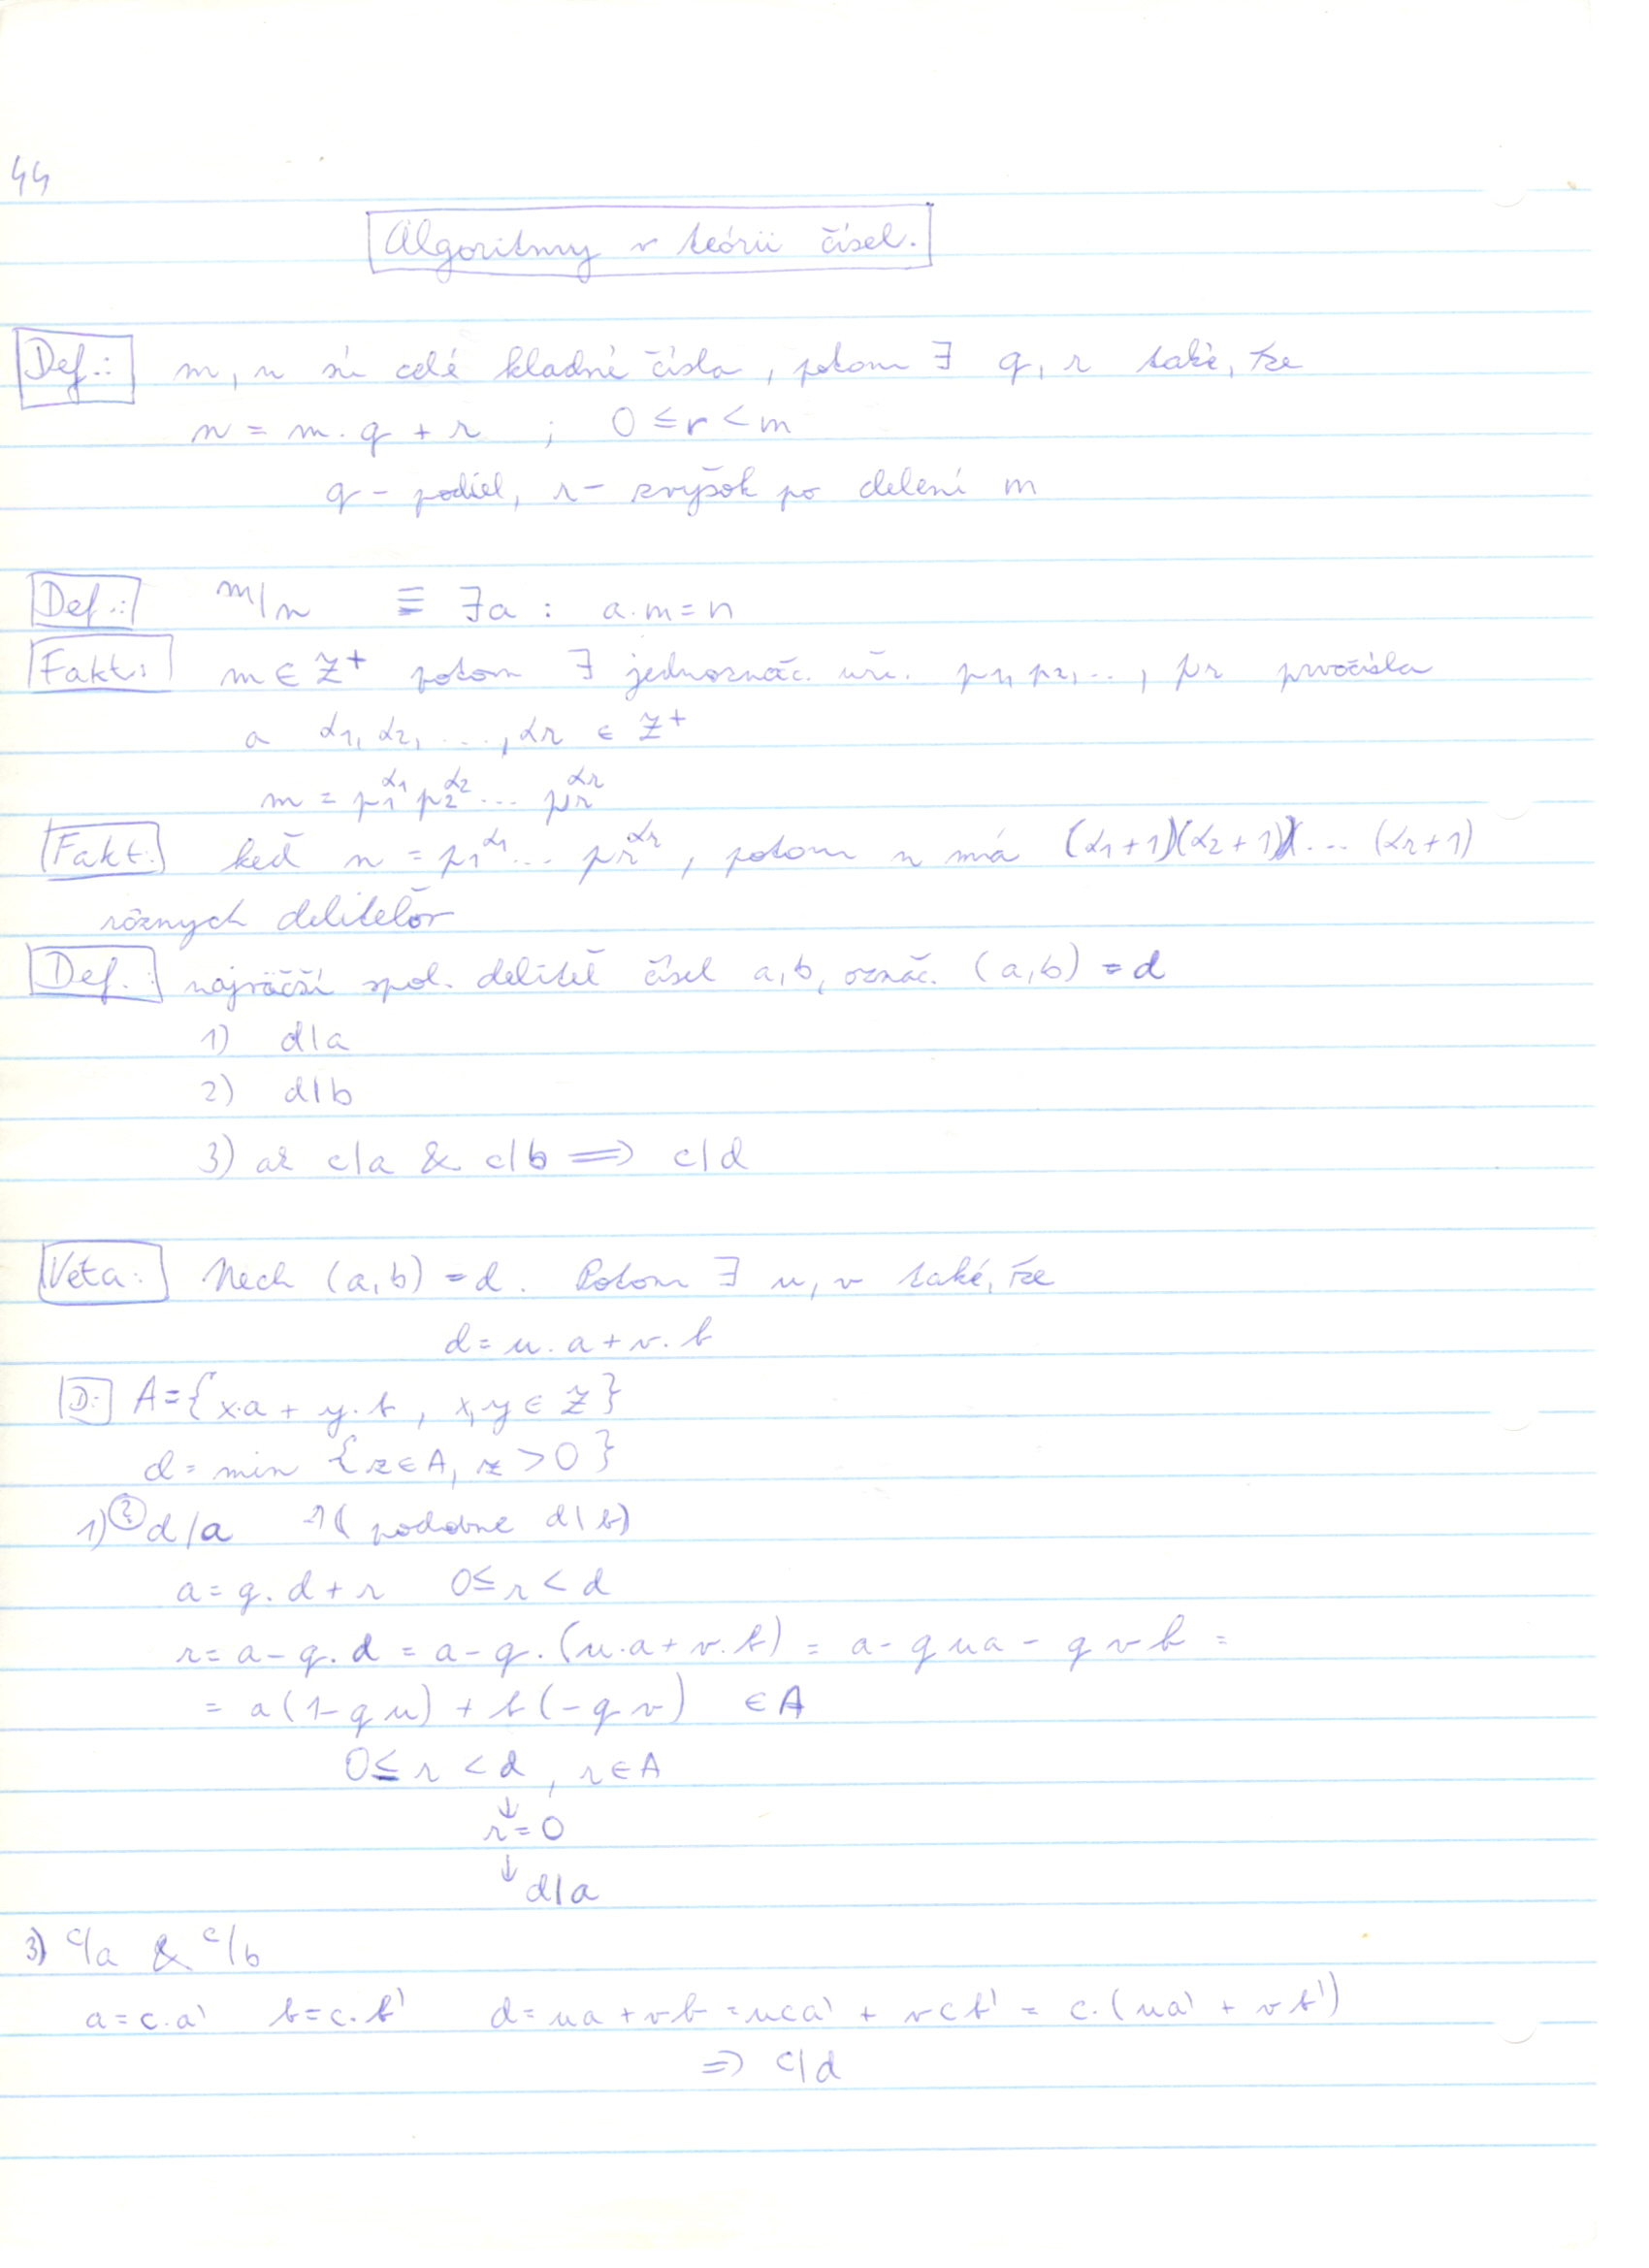 44
Algoritmy v teórii čísel.
Def.: m, n sú celé kladné čísla, potom ∃ q, r také, že
n = m. q + r ; 0 ≤ r < m
q - podiel, r - zvyšok po delení m
Def.: m/n ≡ ∃a : a.m = n
Fakt: m ∈ Z⁺ potom ∃ jednoznač. urč. p₁, p₂, ..., pᵣ prvočísla
a α₁, α₂, ..., αᵣ ∈ Z⁺
m = p₁^α₁ p₂^α₂ ... pᵣ^αᵣ
Fakt: keď n = p₁^α₁ ... pᵣ^αᵣ, potom n má (α₁+1)(α₂+1)... (αᵣ+1)
rôznych deliteľov
Def.: najväčší spol. deliteľ čísel a,b, označ. (a,b) = d
1) d|a
2) d|b
3) ak c|a & c|b ⟹ c|d
Veta: Nech (a,b) = d. Potom ∃ u, v také, že
d = u. a + v. b
D: A = {x.a + y.b, x,y ∈ Z}
d = min {z∈A, z > 0}
1) ? d/a (podobne d|b)
a = q. d + r 0 ≤ r < d
r = a - q. d = a - q. (u.a + v.b) = a - qua - qvb =
= a(1-qu) + b(-qv) ∈ A
0 ≤ r < d, r∈A
↓
r = 0
↓
d|a
3) c/a & c/b
a = c.a' b = c.b' d = ua + vb = uca' + vcb' = c.(ua' + vb')
⇒ c|d